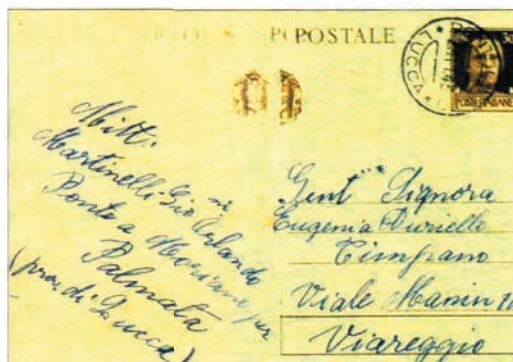 CARTOL POSTALE
LUCCA
POSTE ITALIANE
Mitt.
Martinelli Gio.ni Orlando
Ponte a Moriano per
Palmata
(prov. di Lucca)
Gent Signora
Eugenia Duriello
Timpano
Viale Manin
Viareggio